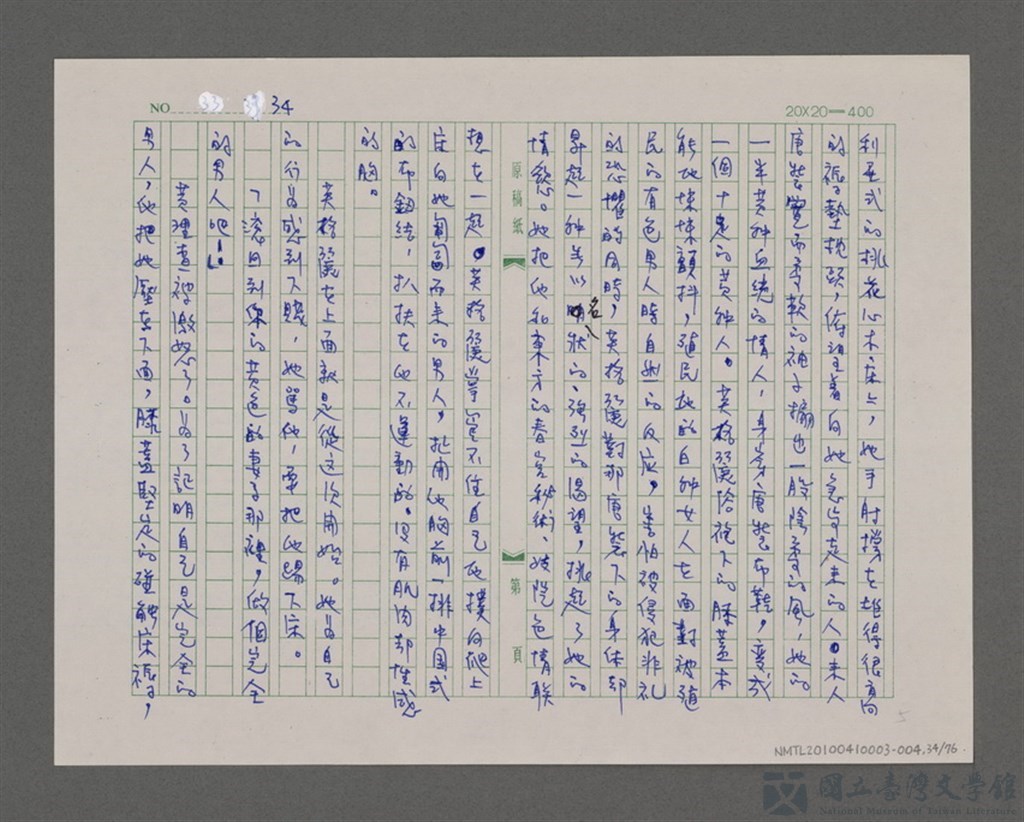 NO 34
20X20=400
利亞式的桃花心木床上，她手肘撐在堆得很高
的褥墊枕頭，仰望著向她急步走來的人。來人
唐裝寬而柔軟的袖子搧出一股陰柔的風，她的
一半黃種血統的情人，身穿唐裝布鞋，變成
一個十足的黃種人。英格麗絲袍下的膝蓋本
能地悚悚顫抖，殖民地的白種女人在面對被殖
民的有色男人時自然的反應，害怕被侵犯非禮
的恐懼的同時，英格麗對那唐裝下的身體卻
昇起一種難以名狀的、強烈的渴望，挑起了她的
情慾。她把他和東方的春宮秘術、妓院色情聯
原稿紙
第 頁
想在一起。英格麗掌管不住自己地撲向爬上
床向她匍匐而來的男人，扯開他胸前一排中國式
的布鈕結，扒扶在他不運動的、沒有肌肉卻性感
的胸。
英格麗在上面就是從這次開始。她為自己
的行為感到下賤，她罵他，要把他踢下床。
「滾回到你的黃色的妻子那裡，做個完全
的男人吧！」
黃理查被激怒了。為了証明自己是完全的
男人，他把她壓在下面，膝蓋堅定的碰觸床褥，
5
NMTL20100410003-004.34/76
國立臺灣文學館
National Museum of Taiwan Literature